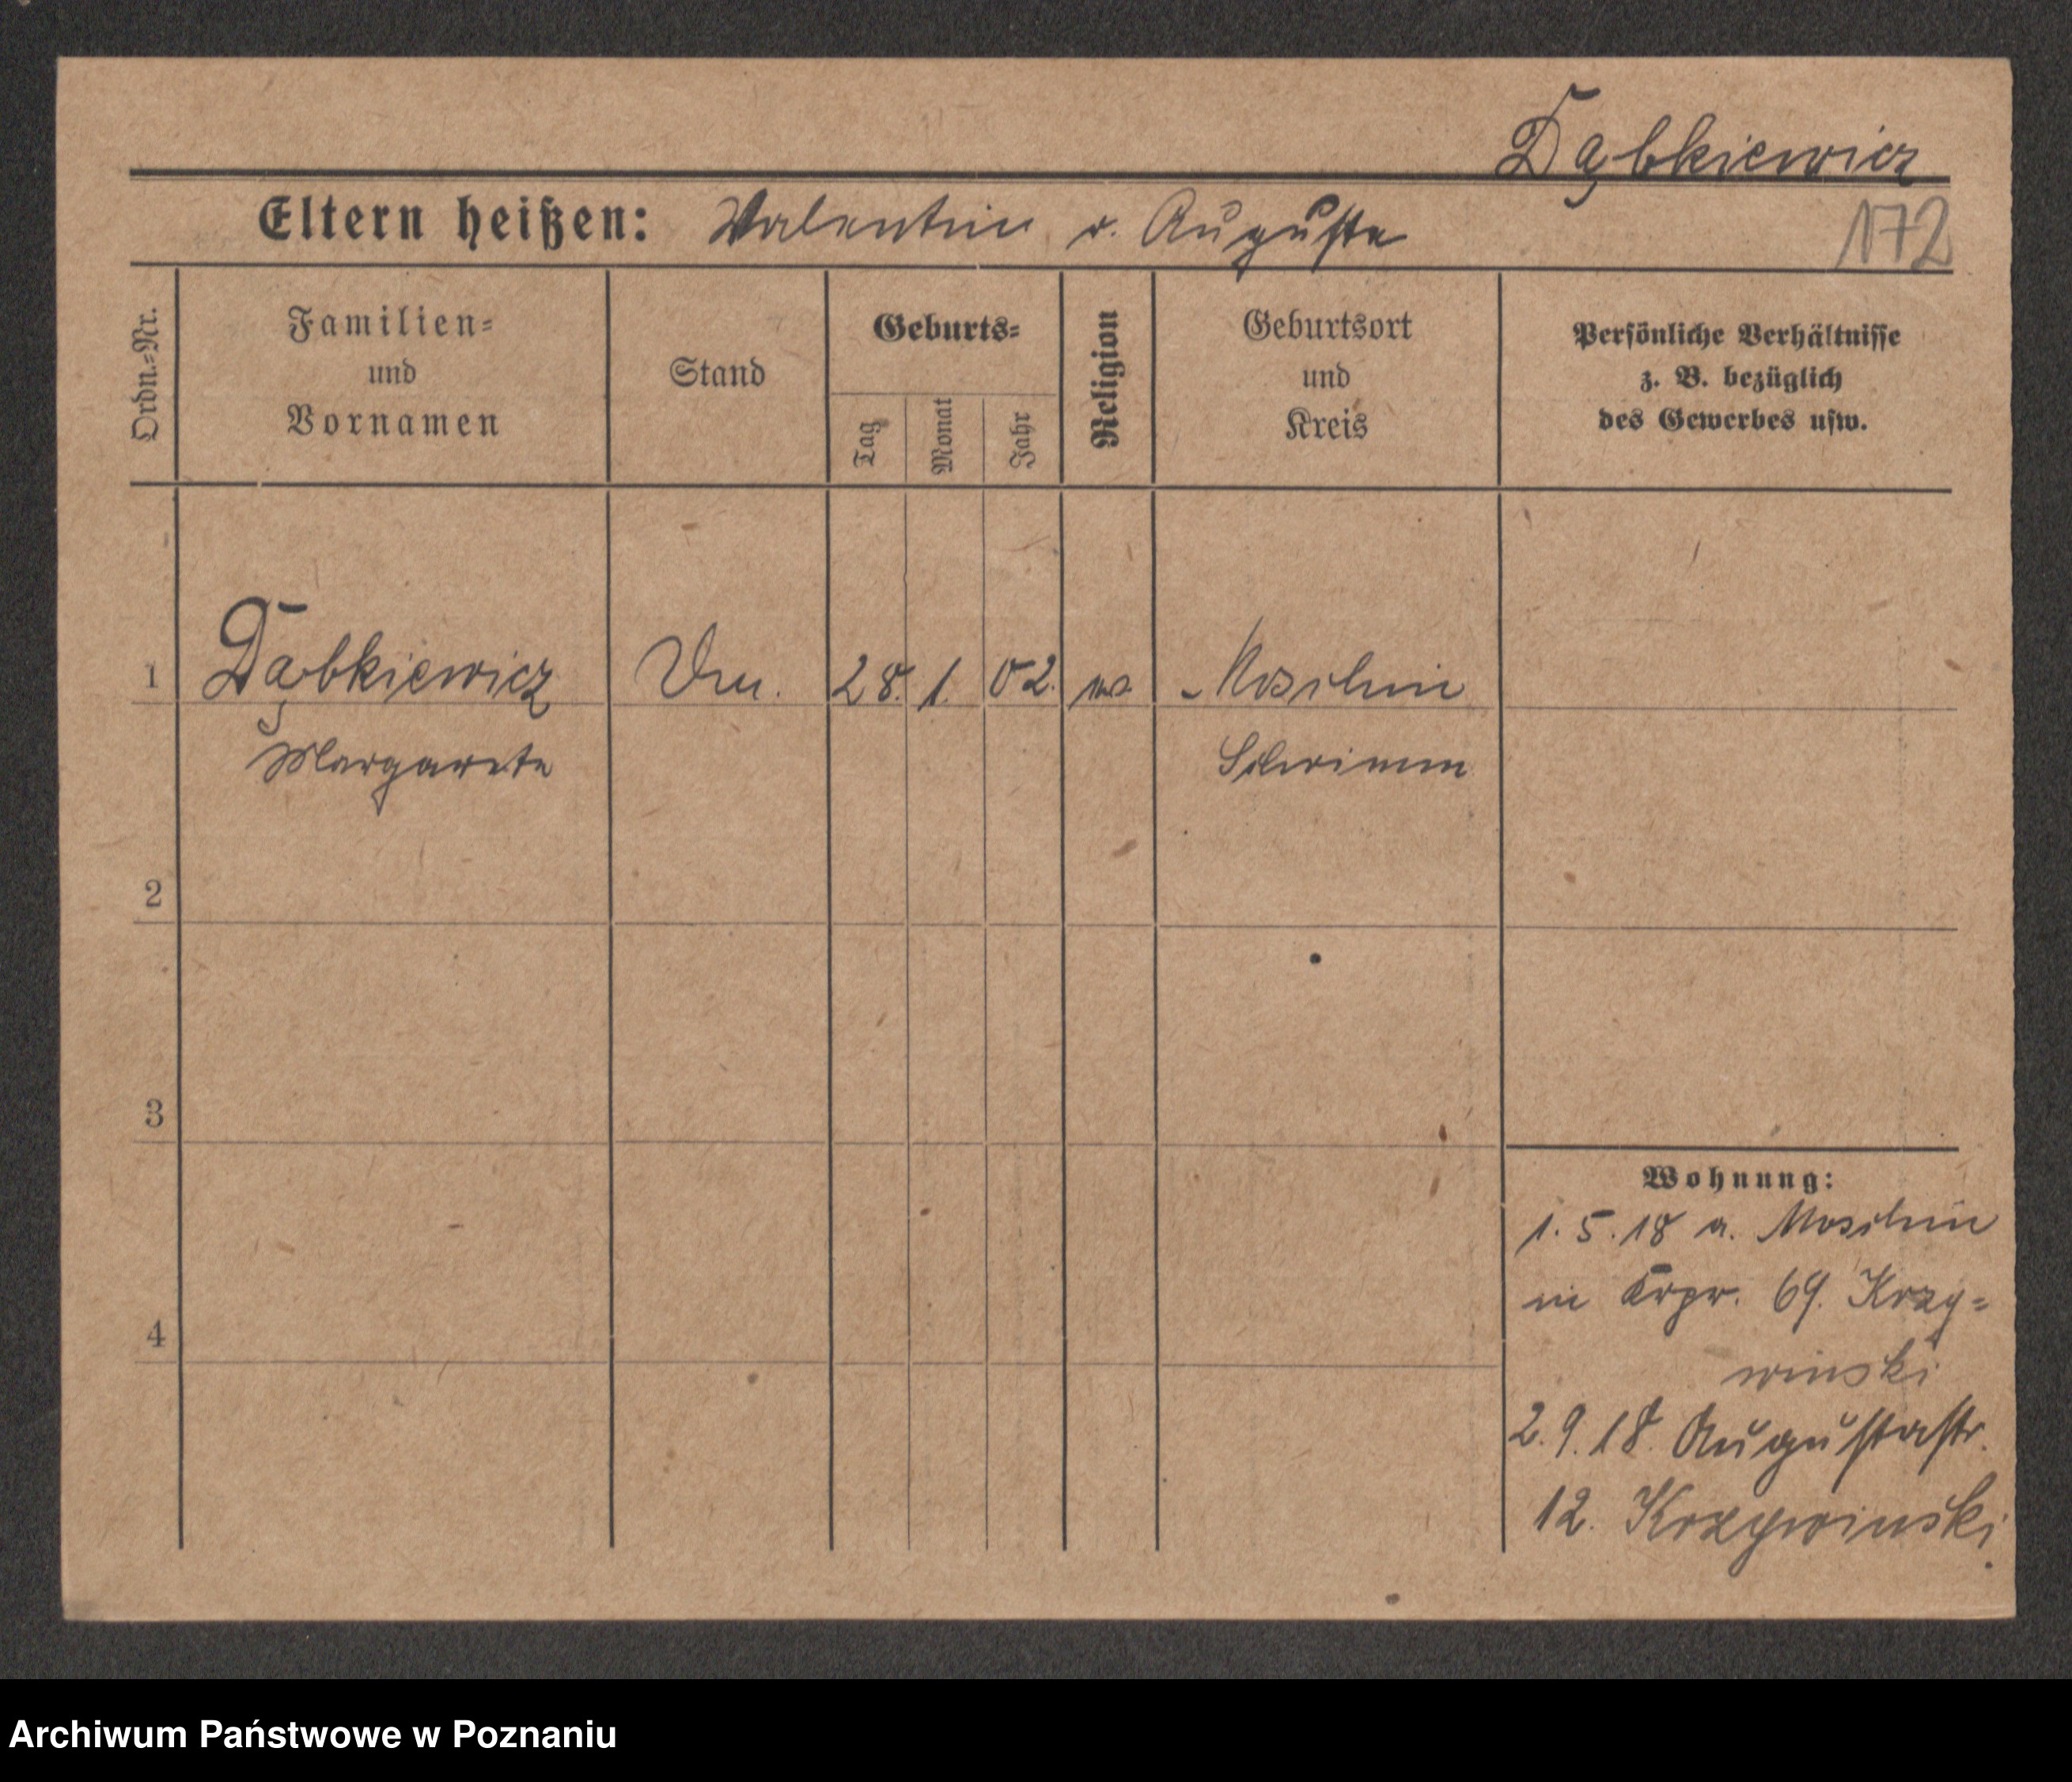 Dąbkiewicz
Eltern heißen: Valentin u. Auguste
172
Ordn.-Nr.
Familien-
und
Vornamen
Stand
Geburts-
Tag
Monat
Jahr
Religion
Geburtsort
und
Kreis
Persönliche Verhältnisse
z. B. bezüglich
des Gewerbes usw.
1 Dąbkiewicz 28. 1. 02. Moschin
Margarete Schrimm
2
3
4
Wohnung:
1.5.18 a. Moschin
69. Krzy-
winski
2.9.18. Augustastr.
12. Krzywinski
Archiwum Państwowe w Poznaniu